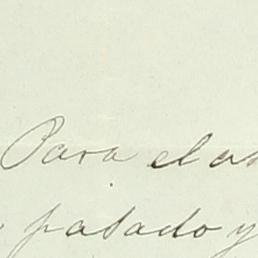 Para el
pasado y